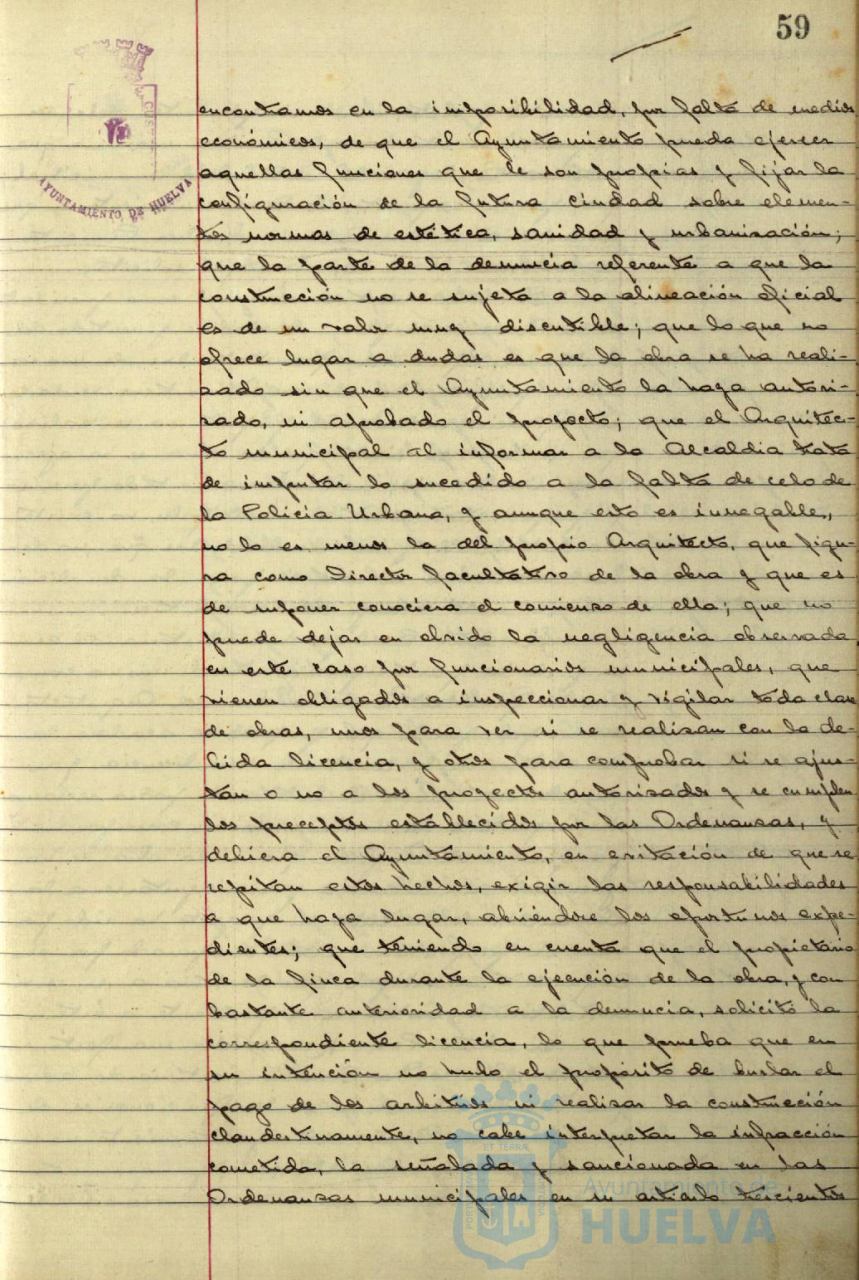 59
AYUNTAMIENTO DE HUELVA
encontramos en la imposibilidad, por falta de medios
económicos, de que el Ayuntamiento pueda ejercer
aquellas funciones que le son propias y fijar la
configuración de la futura ciudad sobre elemen-
tos normas de estética, sanidad y urbanización;
que la parte de la denuncia referente a que la
construcción no se sujeta a la alineación oficial
es de un valor muy discutible; que lo que no
ofrece lugar a dudas es que la obra se ha reali-
zado sin que el Ayuntamiento la haya autori-
zado, ni aprobado el proyecto; que el Arquitec-
to municipal al informar a la Alcaldia trata
de imputar lo sucedido a la falta de celo de
la Policia Urbana, y aunque esto es innegable,
no lo es menos la del propio Arquitecto, que figu-
ra como Director facultativo de la obra y que es
de suponer conociera el comienzo de ella; que no
puede dejar en olvido la negligencia observada
en este caso por funcionarios municipales, que
vienen obligados a inspeccionar y vigilar toda clase
de obras, unos para ver si se realizan con la de-
bida licencia, y otros para comprobar si se ajus-
tan o no a los proyectos autorizados y se cumplen
los preceptos establecidos por las Ordenanzas, y
debiera el Ayuntamiento, en evitación de que se
repitan estos hechos, exigir las responsabilidades
a que haya lugar, abriéndose los oportunos expe-
dientes; que teniendo en cuenta que el propietario
de la finca durante la ejecución de la obra, y con
bastante anterioridad a la denuncia, solicitó la
correspondiente licencia, lo que prueba que en
su intención no hubo el propósito de burlar el
pago de los arbitrios ni realizar la construcción
clandestinamente, no cabe interpretar la infracción
cometida, la señalada y sancionada en las
Ordenanzas municipales en su artículo trescientos
Ayuntamiento de
HUELVA